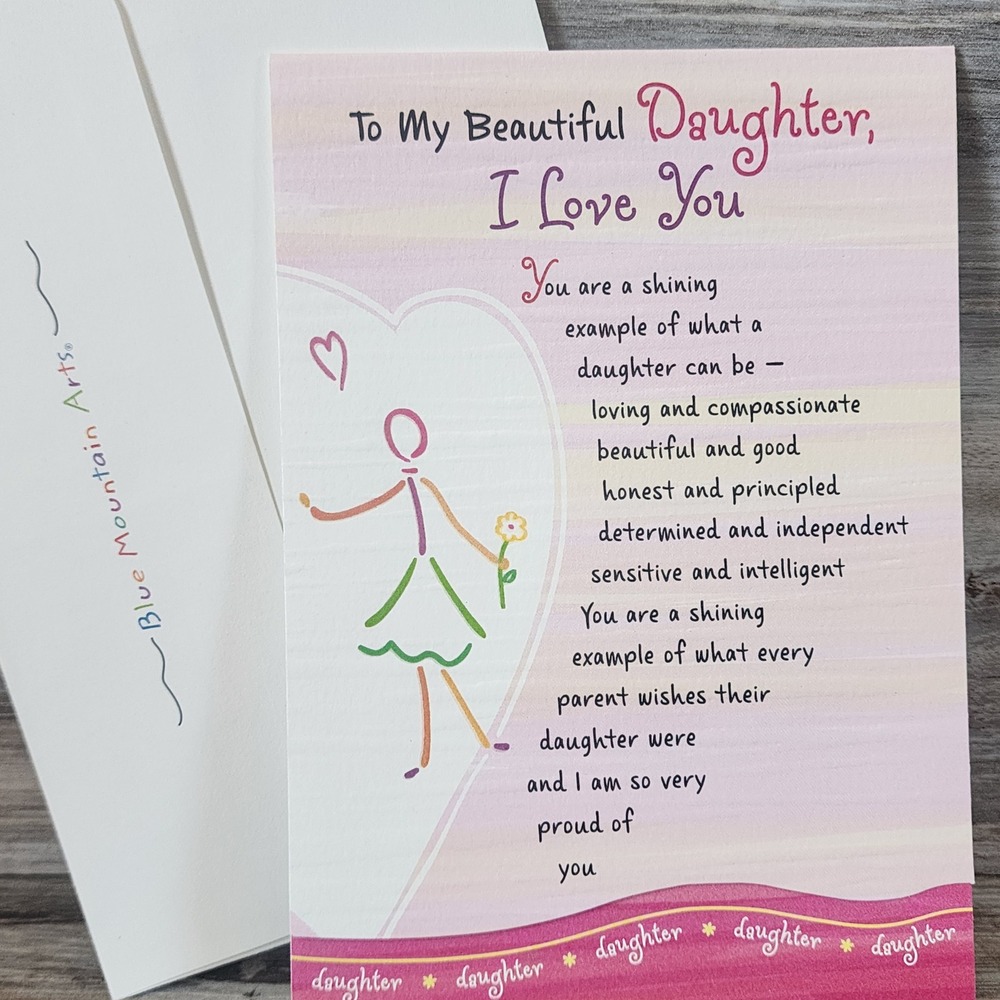 To My Beautiful Daughter,
I Love You
You are a shining
example of what a
daughter can be —
loving and compassionate
beautiful and good
honest and principled
determined and independent
sensitive and intelligent
You are a shining
example of what every
parent wishes their
daughter were
and I am so very
proud of
you
daughter * daughter * daughter * daughter * daughter
Blue Mountain Arts®